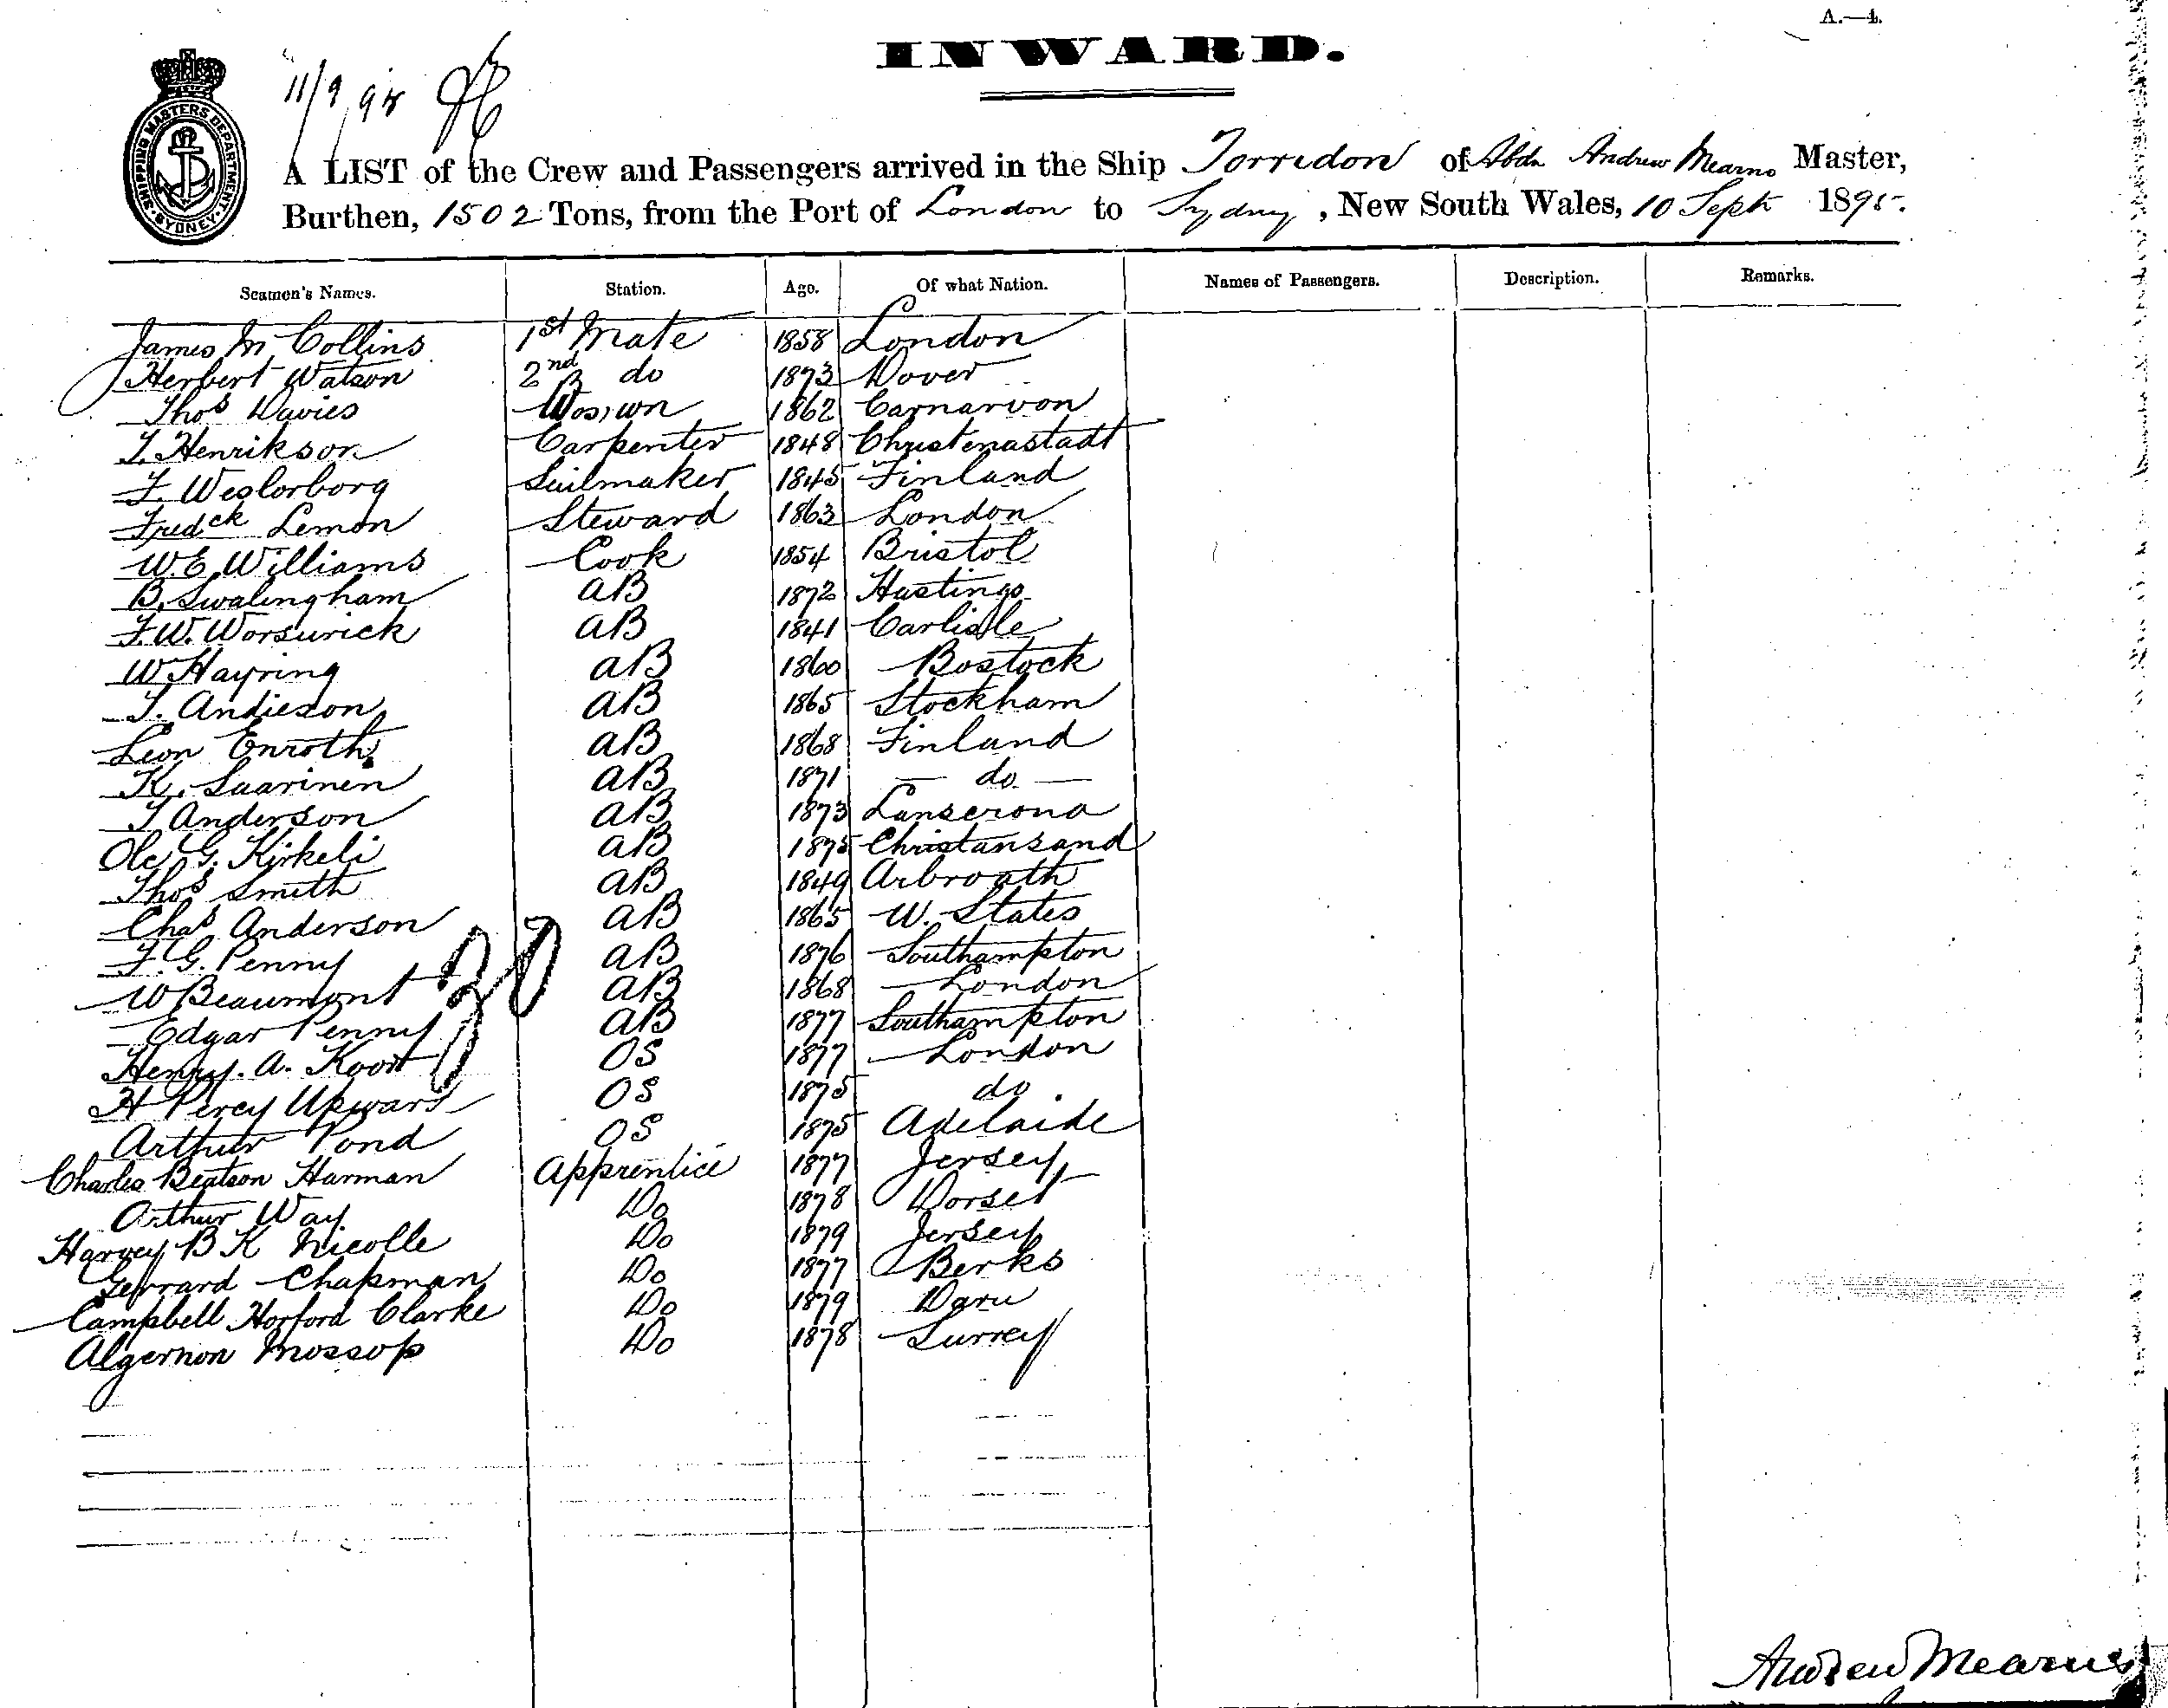 A.—4.
INWARD.
11/9/95
SHIPPING MASTERS DEPARTMENT. SYDNEY.
A LIST of the Crew and Passengers arrived in the Ship Torridon of Abdn Andrew Mearns Master,
Burthen, 1502 Tons, from the Port of London to Sydney, New South Wales, 10 Sept 1895.
Seamen's Names. Station. Age. Of what Nation. Names of Passengers. Description. Remarks.
James M Collins 1st Mate 1858 London
Herbert Watson 2nd do 1873 Dover
Thos Davies Bosun 1862 Carnarvon
J. Henrikson Carpenter 1848 Christenastadt
F. Weslorborg Sailmaker 1845 Finland
Fredck Lemon Steward 1863 London
W.E. Williams Cook 1854 Bristol
B. Swalingham AB 1872 Hastings
F.W. Worswick AB 1841 Carlisle
W Hayring AB 1860 Bostock
J. Andieson AB 1865 Stockham
Leon Enroth AB 1868 Finland
K. Saarinen AB 1871 — do —
J Anderson AB 1873 Lanserona
Ole G. Kirkeli AB 1875 Christansand
Thos Smith AB 1849 Arbroath
Chas Anderson AB 1865 U. States
F. G. Penny AB 1876 Southampton
W Beaumont AB 1868 London
30
Edgar Penny AB 1877 Southampton
Henry. A. Koort OS 1877 London
H Percy Upward OS 1875 do
Arthur Pond OS 1875 Adelaide
Charles Beatson Harman Apprentice 1877 Jersey
Arthur Way Do 1878 Dorset
Harvey B K Nicolle Do 1879 Jersey
Gerrard Chapman Do 1877 Berks
Campbell Horford Clarke Do 1879 Daru
Algernon Mossop Do 1878 Surrey
Andrew Mearns